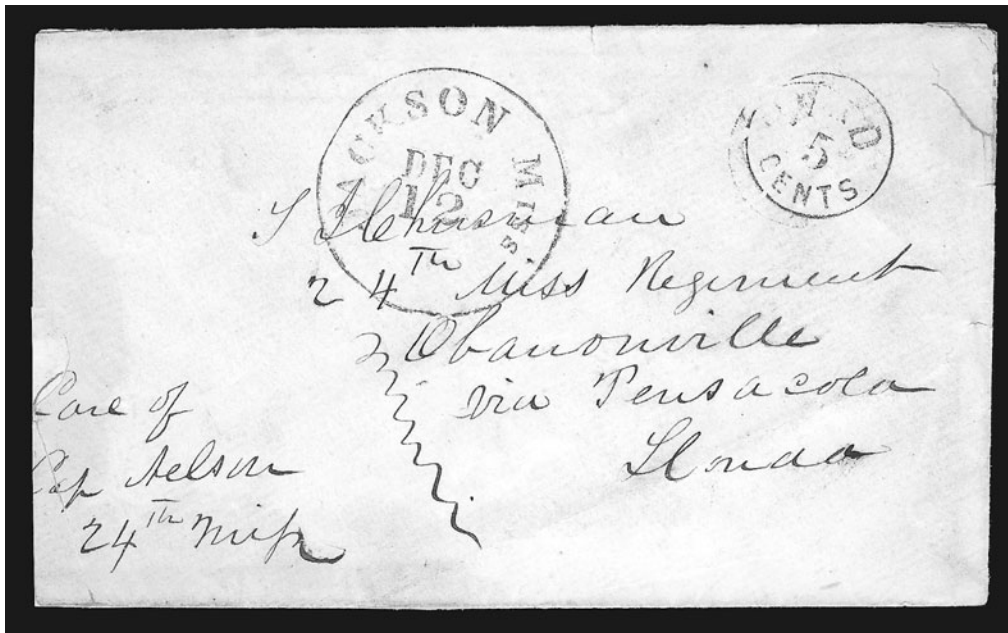 JACKSON MISS
DEC
12
PAID
5
CENTS
S J Chrisman
24th Miss Regiment
Obanonville
via Pensacola
Florida
Care of
Cap Nelson
24th Miss